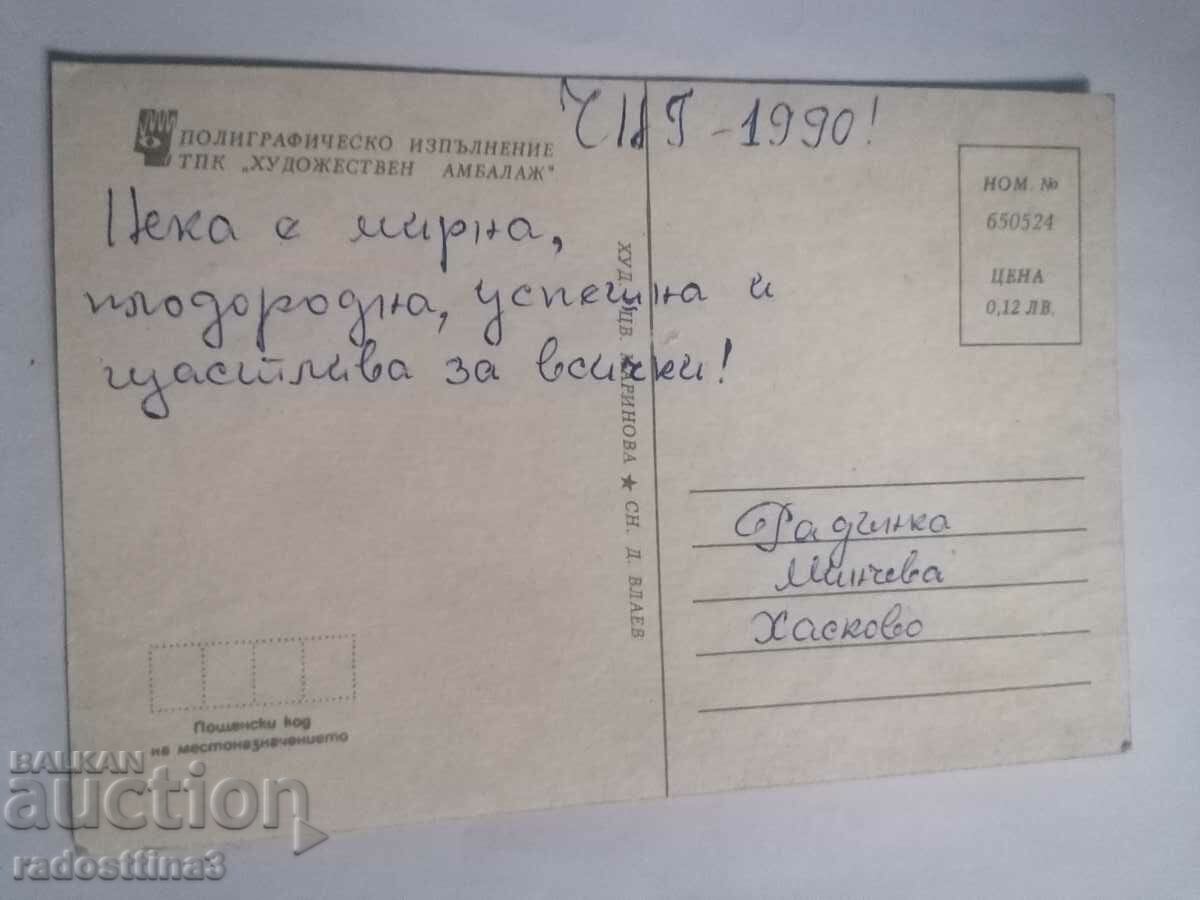 ЧНГ - 1990!
ПОЛИГРАФИЧЕСКО ИЗПЪЛНЕНИЕ
ТПК „ХУДОЖЕСТВЕН АМБАЛАЖ"
Нека е мирна,
плодородна, успешна и
щастлива за всички!
ХУД. ЦВ. МАРИНОВА ★ СН. Д. ВЛАЕВ
НОМ. №
650524
ЦЕНА
0,12 ЛВ.
Минчева
Хасково
Пощенски код
на местоназначението
BALKAN
auction
radosttina3